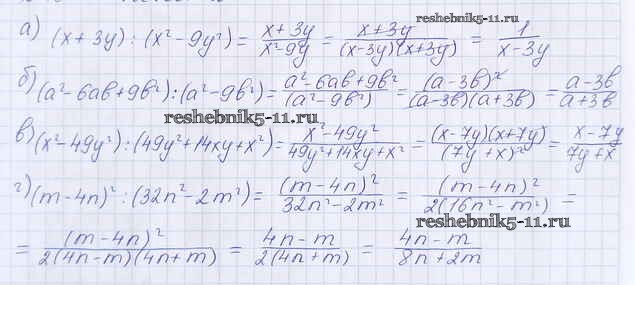 reshebnik5-11.ru
а) (x + 3y) : (x² - 9y²) = (x + 3y)/(x² - 9y) = (x + 3y)/((x - 3y)(x + 3y)) = 1/(x - 3y)
б) (a² - 6ab + 9b²) : (a² - 9b²) = (a² - 6ab + 9b²)/(a² - 9b²) = (a - 3b)²/((a - 3b)(a + 3b)) = (a - 3b)/(a + 3b)
reshebnik5-11.ru
в) (x² - 49y²) : (49y² + 14xy + x²) = (x² - 49y²)/(49y² + 14xy + x²) = ((x - 7y)(x + 7y))/(7y + x)² = (x - 7y)/(7y + x)
г) (m - 4n)² : (32n² - 2m²) = (m - 4n)²/(32n² - 2m²) = (m - 4n)²/(2(16n² - m²)) =
reshebnik5-11.ru
= (m - 4n)²/(2(4n - m)(4n + m)) = (4n - m)/(2(4n + m)) = (4n - m)/(8n + 2m)